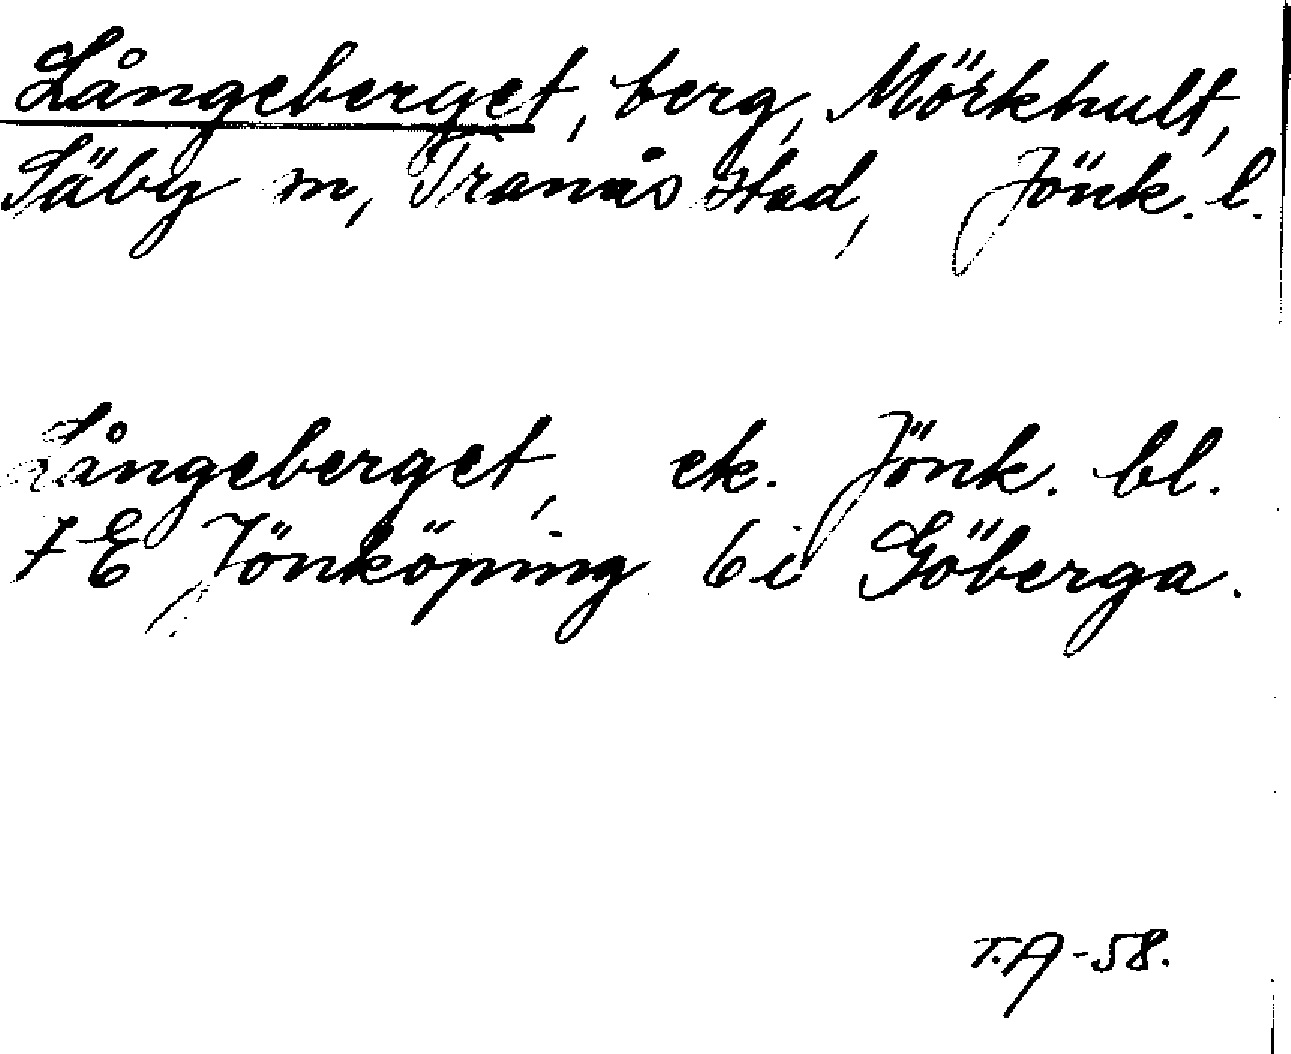 Långeberget, berg, Mörkhult,
Säby sn, Tranås stad, Jönk. l.
Långeberget, ek. Jönk. bl.
7E Jönköping 6i Göberga.
T.A-58.